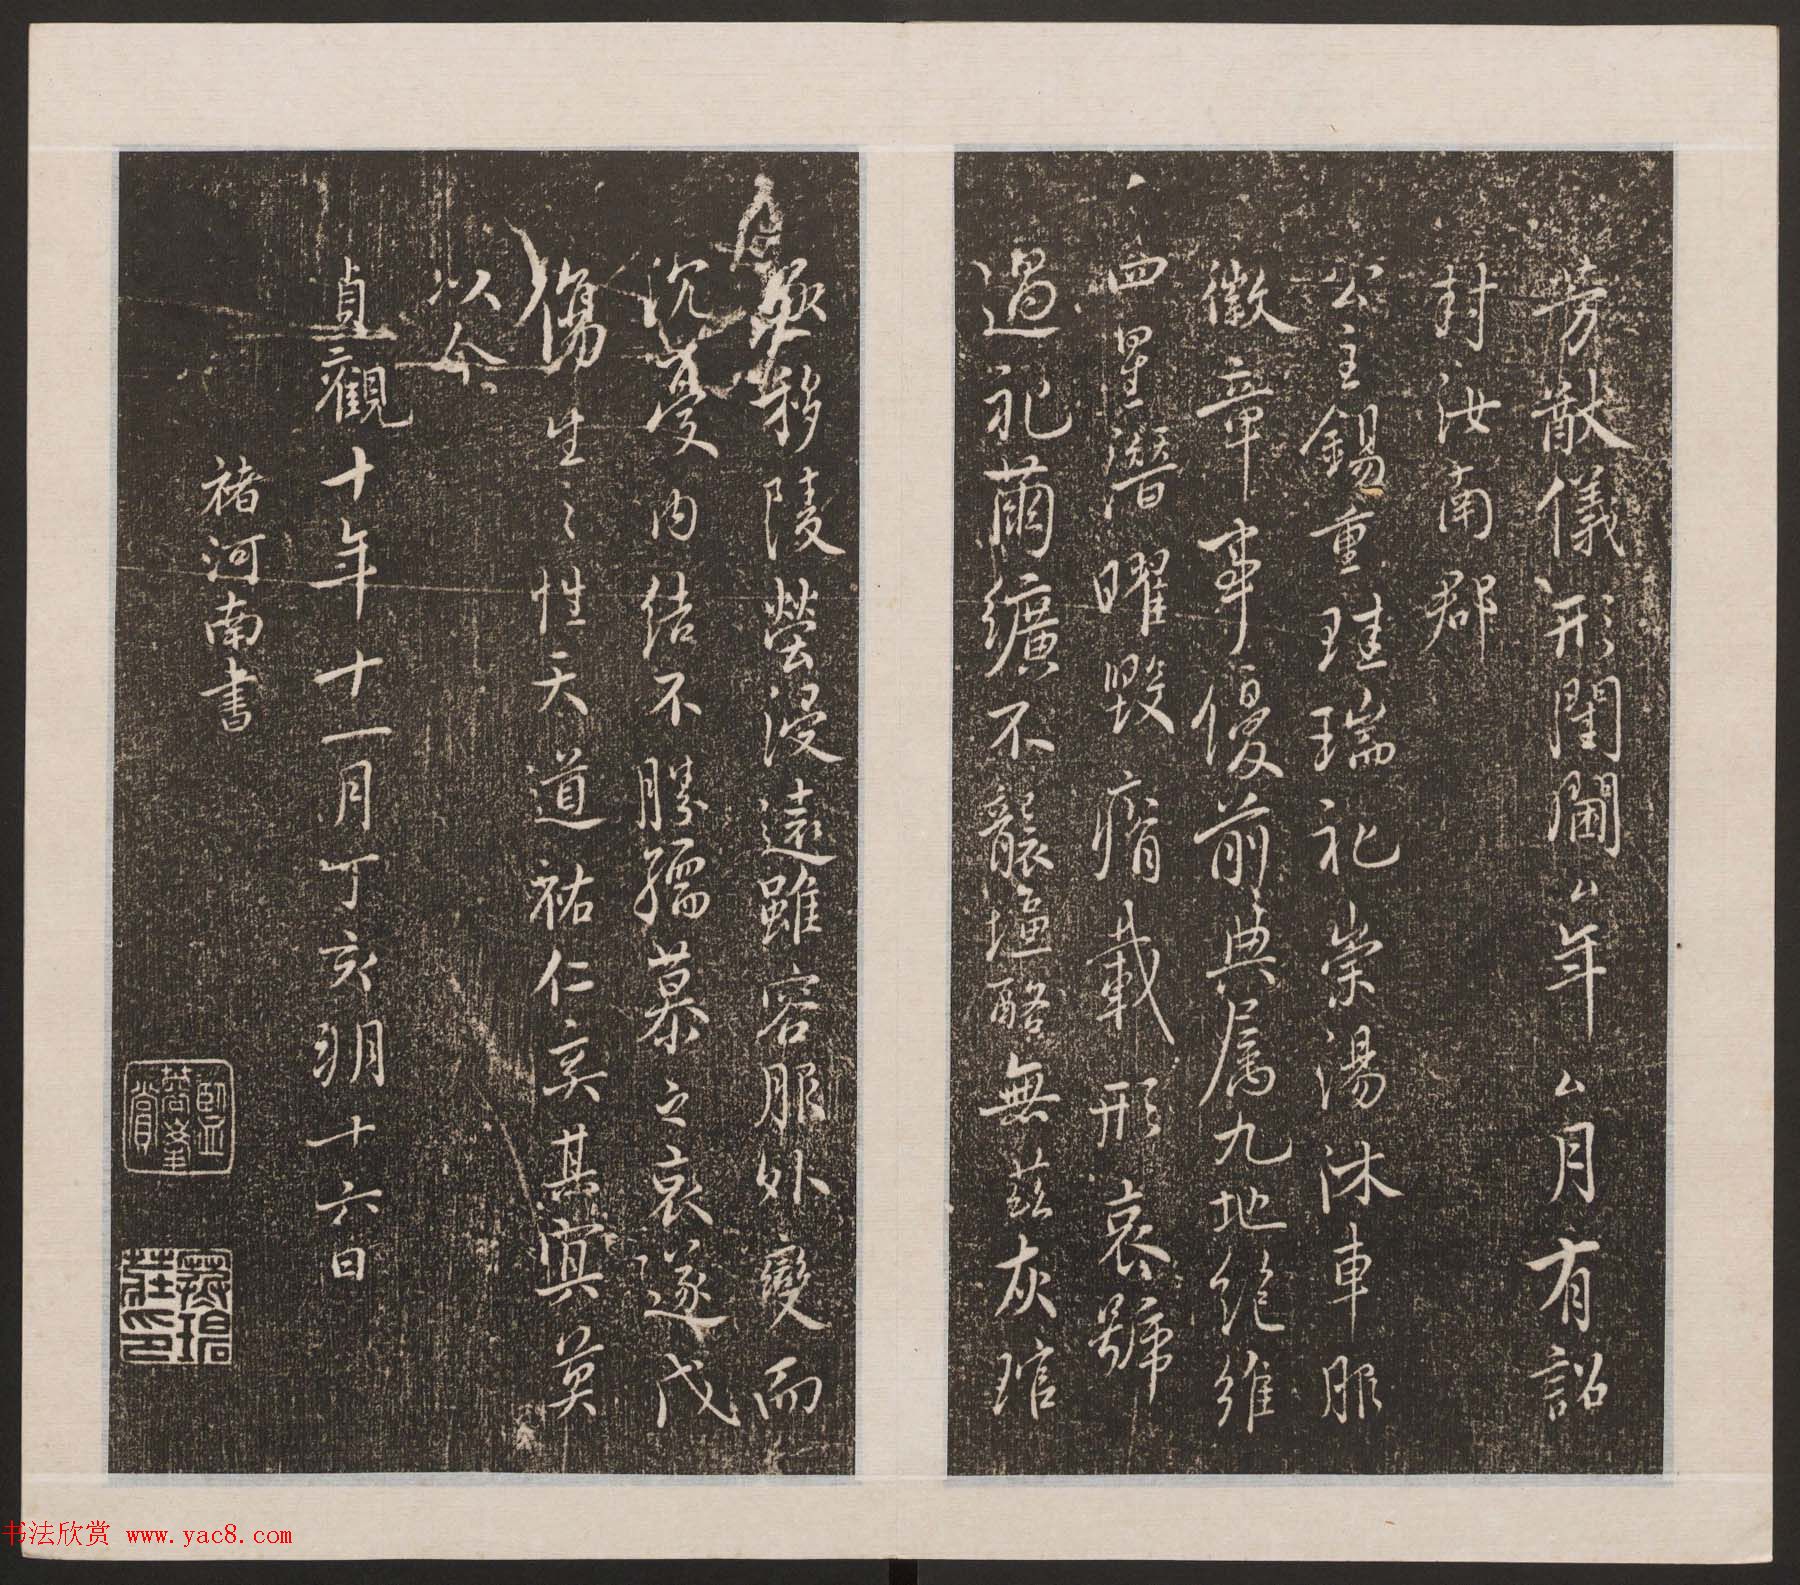 旁猷儀形閨閫厶年厶月有詔
封汝南郡
公主錫重珪瑞礼崇湯沐車服
徽章事優前典属九地絶維
四星潛曜毀瘠載形哀號
過礼繭纊不襲塩酪無茲灰琯
亟移陵塋浸遠雖容服外變而
沉憂内结不勝孺慕之哀遂戊
傷生之性天道祐仁奚其寘莫
以今
貞觀十年十一月丁亥朔十六日
褚河南書
书法欣赏 www.yac8.com